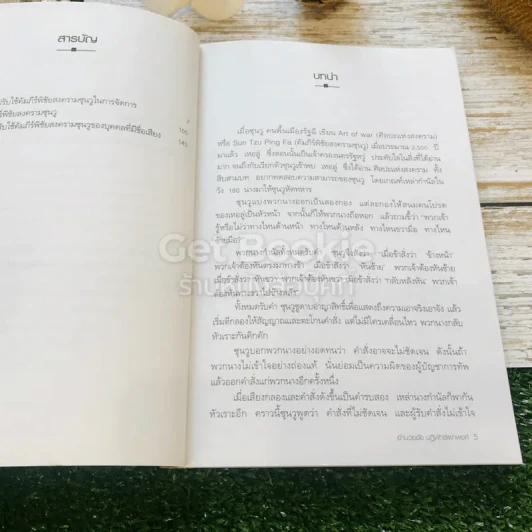 สารบัญ
รับใช้คัมภีร์พิชัยสงครามซุนวูในการจัดการ
ร์พิชัยสงครามซุนวู
105
รับใช้คัมภีร์พิชัยสงครามซุนวูของบุคคลที่มีชื่อเสียง
145
บทนำ
เมื่อซุนวู คนพื้นเมืองรัฐฉี เขียน Art of war (ศิลปะแห่งสงคราม)
หรือ Sun Tzu Ping Fa (คัมภีร์พิชัยสงครามซุนวู) เมื่อประมาณ 2,500 ปี
มาแล้ว เหอลู่ ซึ่งตอนนั้นเป็นเจ้าครองนครรัฐหวู่ ประทับใจในสิ่งที่ได้อ่าน
มาก จนถึงกับเรียกตัวซุนวูเข้าพบ เหอลู่ ซึ่งได้อ่าน ศิลปะแห่งสงคราม ทั้ง
สิบสามบท อยากทดสอบความสามารถของซุนวู โดยเกณฑ์เหล่ากำนัลใน
วัง 180 นางมาให้ซุนวูหัดทหาร
ซุนวูแบ่งพวกนางออกเป็นสองกอง แต่ละกองให้สนมคนโปรด
ของเหอลู่เป็นหัวหน้า จากนั้นก็ให้พวกนางถือหอก แล้วถามขึ้นว่า "พวกเจ้า
รู้หรือไม่ว่าทางไหนด้านหน้า ทางไหนด้านหลัง ทางไหนขวามือ ทางไหน
ซ้ายมือ?"
พวกนางกำนัลทั้งหมดรับคำ ซุนวูจึงสั่งว่า "เมื่อข้าสั่งว่า 'ข้างหน้า'
พวกเจ้าต้องหันตรงมาทางข้า เมื่อข้าสั่งว่า 'หันซ้าย' พวกเจ้าต้องหันซ้าย
เมื่อข้าสั่งว่า 'หันขวา' พวกเจ้าต้องหันขวา เมื่อข้าสั่งว่า 'กลับหลังหัน' พวกเจ้า
ต้องหันกลับไปข้างหลัง"
ทั้งหมดรับคำ ซุนวูชูดาบอาญาสิทธิ์เพื่อแสดงถึงความเอาจริงเอาจัง แล้ว
เริ่มตีกลองให้สัญญาณและตะโกนคำสั่ง แต่ไม่มีใครเคลื่อนไหว พวกนางกลับ
หัวเราะกันคิกคัก
ซุนวูบอกพวกนางอย่างอดทนว่า คำสั่งอาจจะไม่ชัดเจน ดังนั้นถ้า
พวกนางไม่เข้าใจอย่างถ่องแท้ นั่นย่อมเป็นความผิดของผู้บัญชาการทัพ
แล้วออกคำสั่งแก่พวกนางอีกครั้งหนึ่ง
เมื่อเสียงกลองและคำสั่งดังขึ้นเป็นคำรบสอง เหล่านางกำนัลก็พากัน
หัวเราะอีก คราวนี้ซุนวูพูดว่า คำสั่งที่ไม่ชัดเจน และผู้รับคำสั่งไม่เข้าใจ
อำนวยชัย ปฏิพัทธ์เผ่าพงศ์ 5
Get Bookie